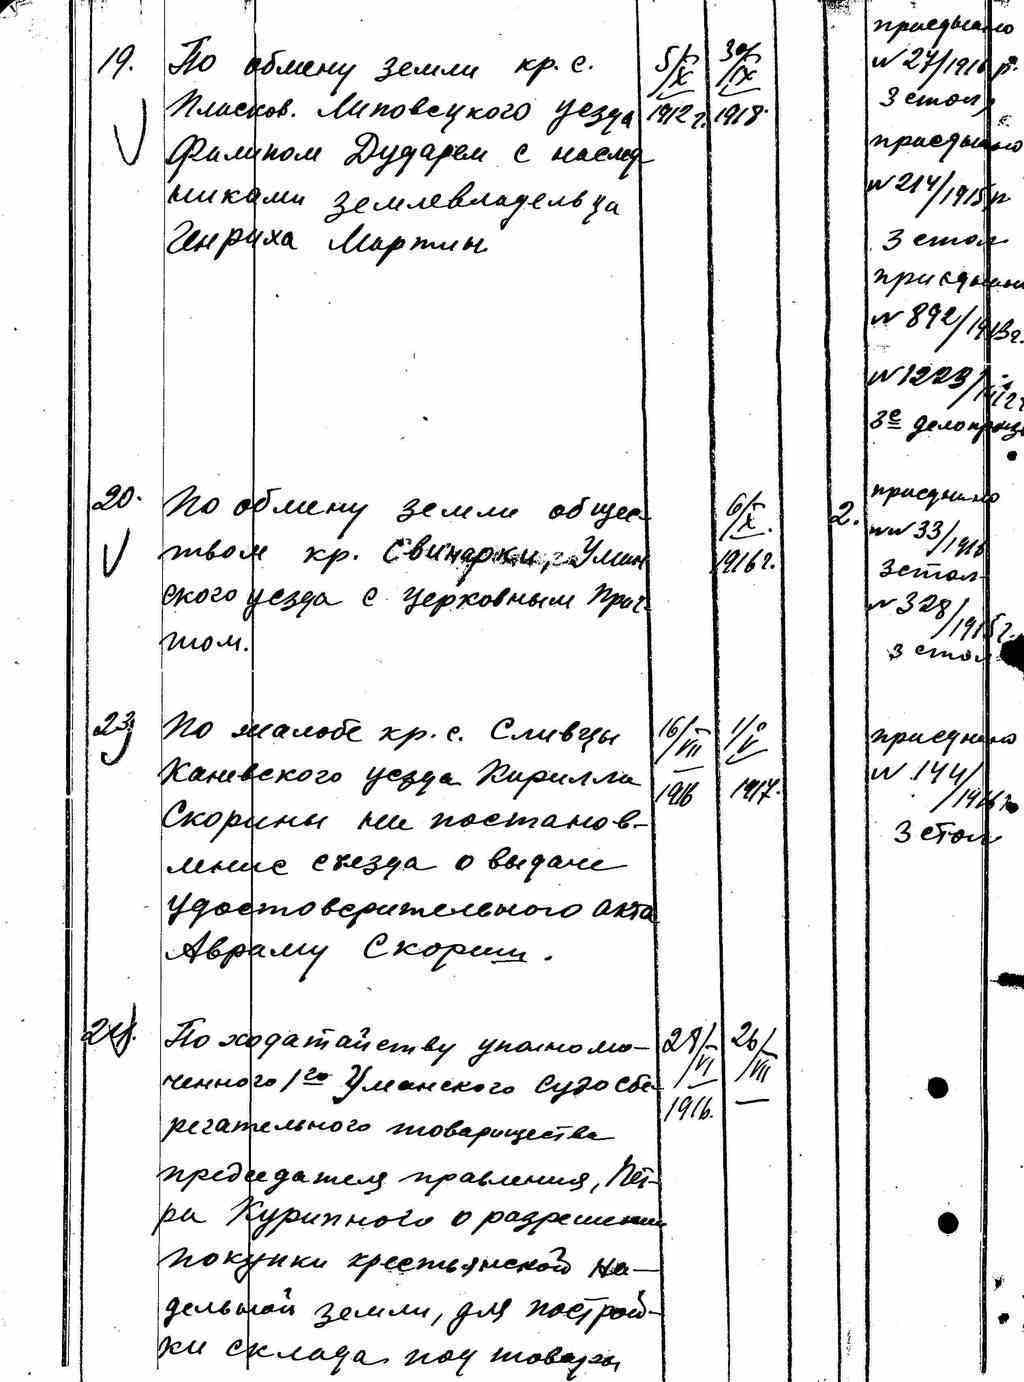 19. По обмену земли кр. с.
Плисков. Липовецкого уезда
Филипом Дударем с наслед
никами землевладельца
Генриха Мартмы
5/X 1912 г.
30/IX 1918
присдынено
N 27/1916 г.
3 стол,
присдынено
N 214/1915 г
3 стол
присдынено
N 892/1913 г.
N 1223/1912 г
3е делопроизв
20. По обмену земли общес
твом кр. Свинарки, Уман
ского уезда с церковным Прич-
том.
6/X. 1916 г.
2.
присднено
NN 33/1916
3 стол
N 328/1915 г.
3 стол
23 По жалобе кр. с. Сливцы
Каневского уезда Кирилла
Скорины на постанов-
ление съезда о выдаче
удостоверительного акта
Авраму Скорини.
16/VII 1916
1/V 1917.
присднено
N 144/1916 г.
3 стол
24. По ходатайству уполномо-
ченного 1го Уманского судосбе-
регательного товарищества
председателя правления, Пет-
ра Курипного о разрешении
покупки крестьянской на-
дельной земли, для построй-
ки склада под товары
28/VI 1916.
26/VIII